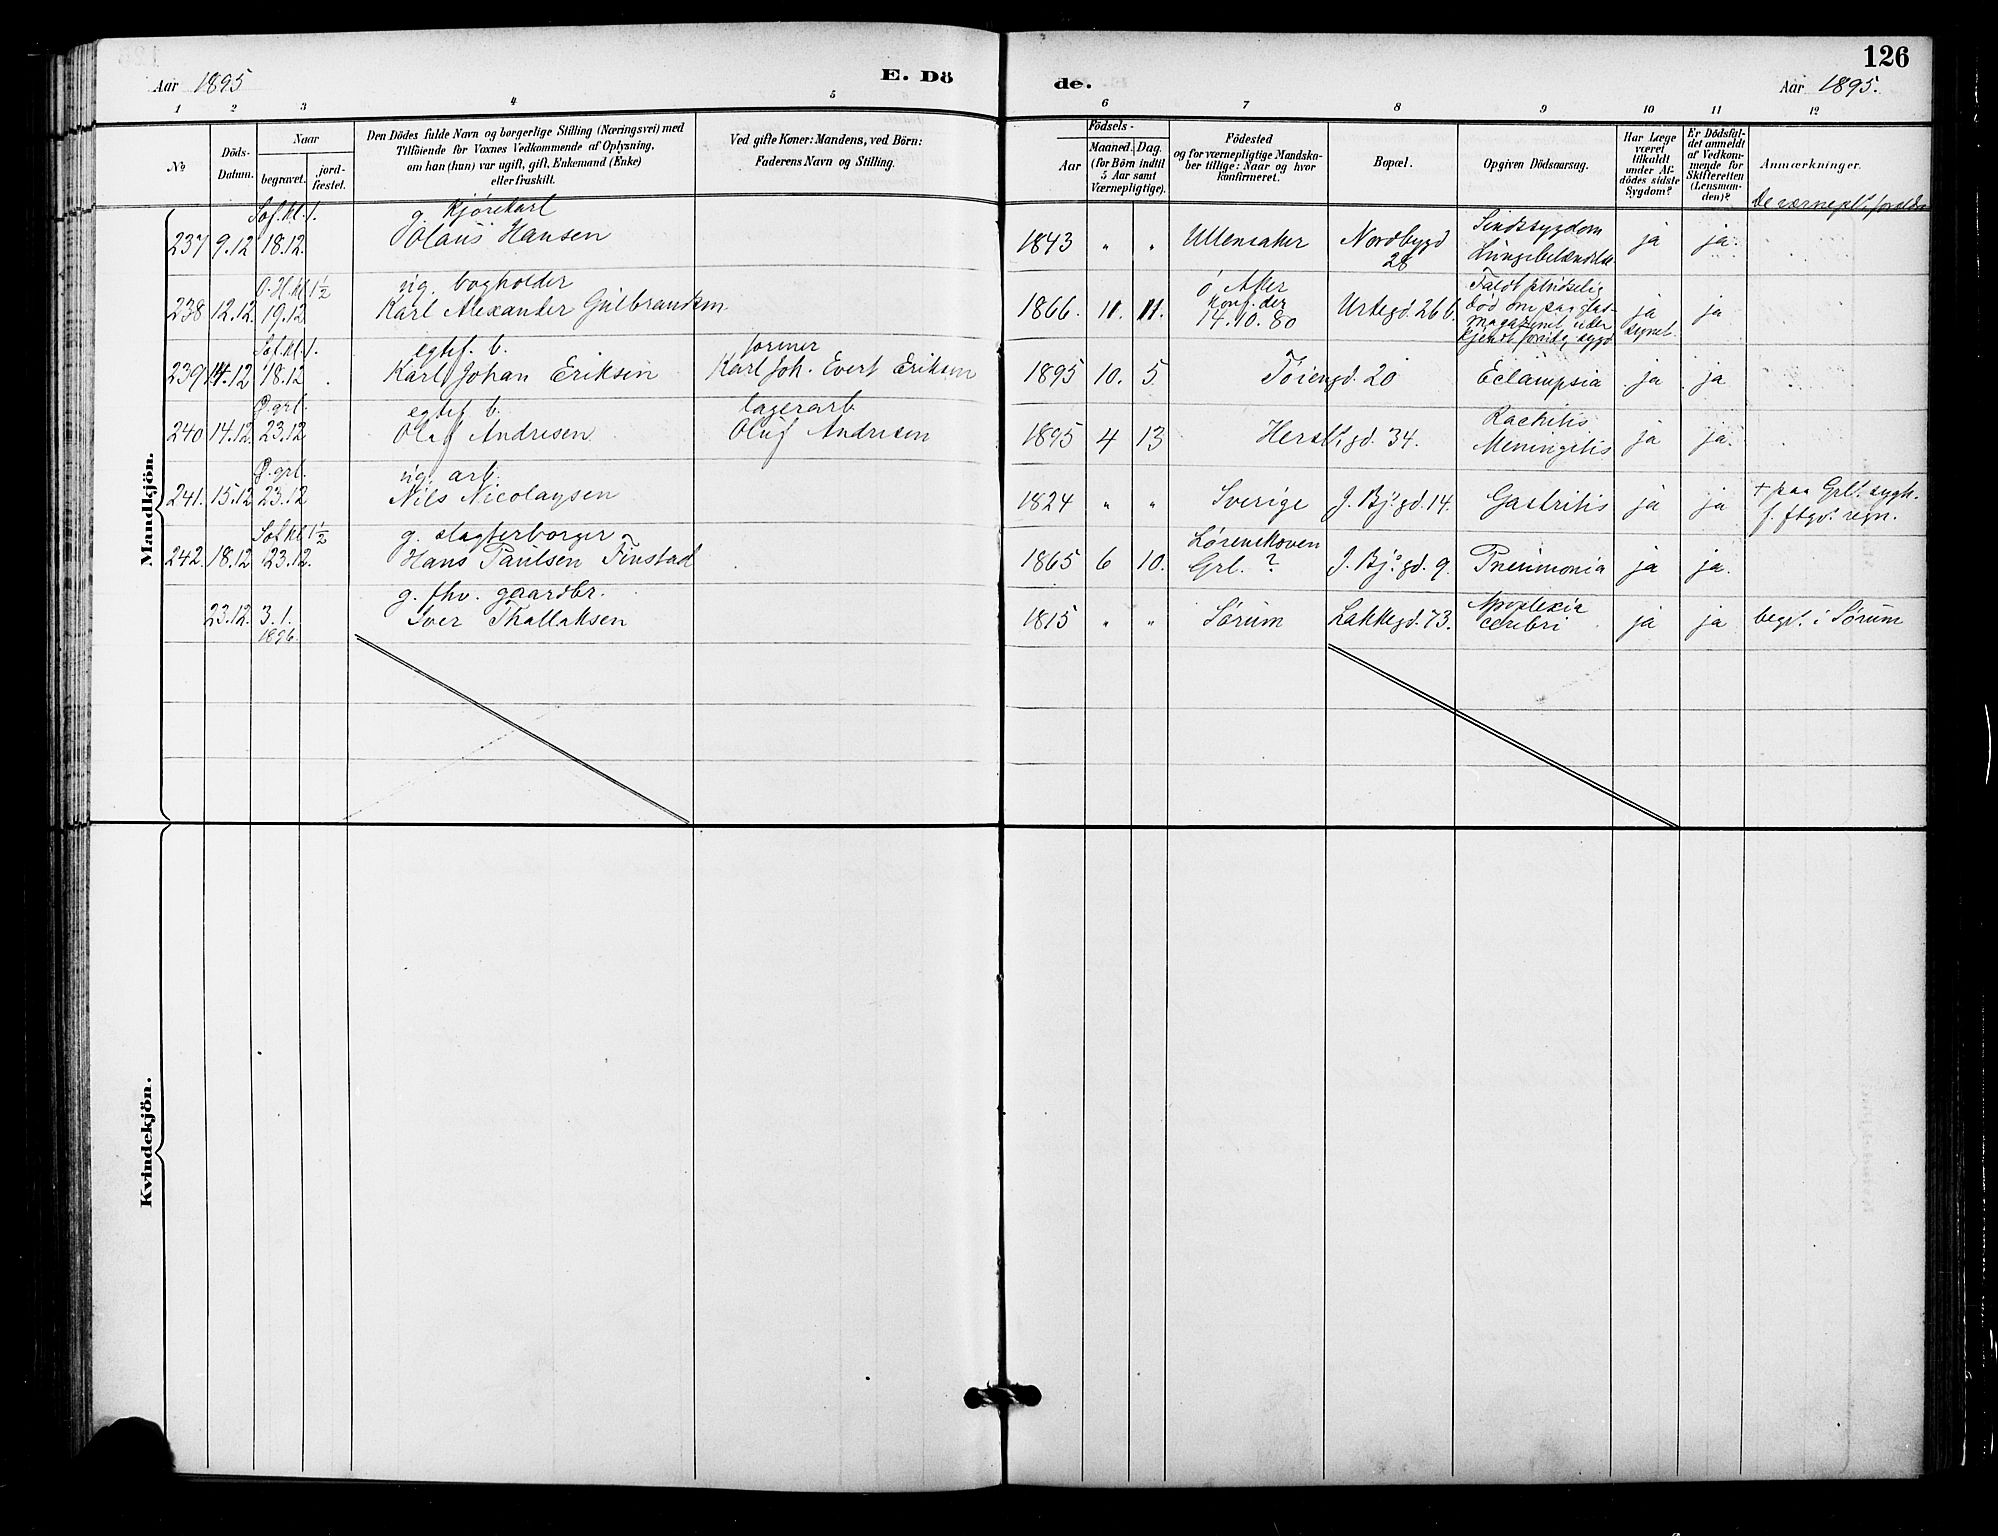 126
Aar 1895
E. Dö
de.
Aar 1895.
1 2 3 4 5 6 7 8 9 10 11 12
No
Döds-
Datum.
Naar
begravet.
jord-
fæstet.
Den Dödes fulde Navn og borgerlige Stilling (Næringsvei) med
Tilföiende for Voxnes Vedkommende af Oplysning,
om han (hun) var ugift, gift, Enkemand (Enke)
eller fraskilt.
Ved gifte Koner: Mandens, ved Börn:
Faderens Navn og Stilling.
Födsels-
Aar
Maaned.
Dag.
(for Börn indtil
5 Aar samt
Værnepligtige).
Födested
og for værnepligtige Mandska-
ber tillige: Naar og hvor
konfirmeret.
Bopæl.
Opgiven Dödsaarsag.
Har Læge
været
tilkaldt
under Af-
dödes sidste
Sygdom?
Er Dödsfal-
det anmeldt
af Vedkom-
mende for
Skifteretten
(Lensman-
den)?
Anmærkninger.
De værnepl.
Mandkjön.
Sof. kl. 1.
g. kjörekarl
237 9.12 18.12. Olaus Hansen 1843 " " Ullensaker Nordbygd 28 Sindssygdom
Lungebetændelse ja ja.
O. H. kl 1½
ug. bogholder
238 12.12. 19.12. Karl Alexander Gulbrandsen 1866. 11. 11. ö. Aker
konf. der
14.10.80 Urtegd. 26 b. Faldt pludselig
död om paa glas-
magazinet
ja
synet ja
Sof. kl. 1.
egtef. b.
former
239 14.12 18.12 Karl Johan Eriksen Karl Joh. Evert Eriksen 1895 10. 5. Töiengd. 20 Eclampsia ja ja
Ø. grl.
egtef. b.
lagerarb
240 14.12. 23.12 Olaf Andresen Oluf Andresen 1895 4 13 Herslbgd. 34. Rachitis
Meningitis ja ja.
Ø. grl.
ug. arb.
241. 15.12 23.12 Nils Nicolaysen 1824 " " Sverige J. Bj. gd. 14. Gastritis ja ja + paa Grl. sygh.
f. ftgv. regn.
Sof. kl 1½
g. slagterborger
242. 18.12 23.12. Hans Paulsen Finstad 1865 6 10. Lørenskoven
Grl. ? J. Bj. gd. 9. Pneumonia ja ja.
g. fhv. gaardbr.
23.12. 3.1.
1896. Iver Thallaksen 1815 " " Sørum Lakkegd. 73. Apoplexia
cerebri ja ja begr. i Sørum
Kvindekjön.